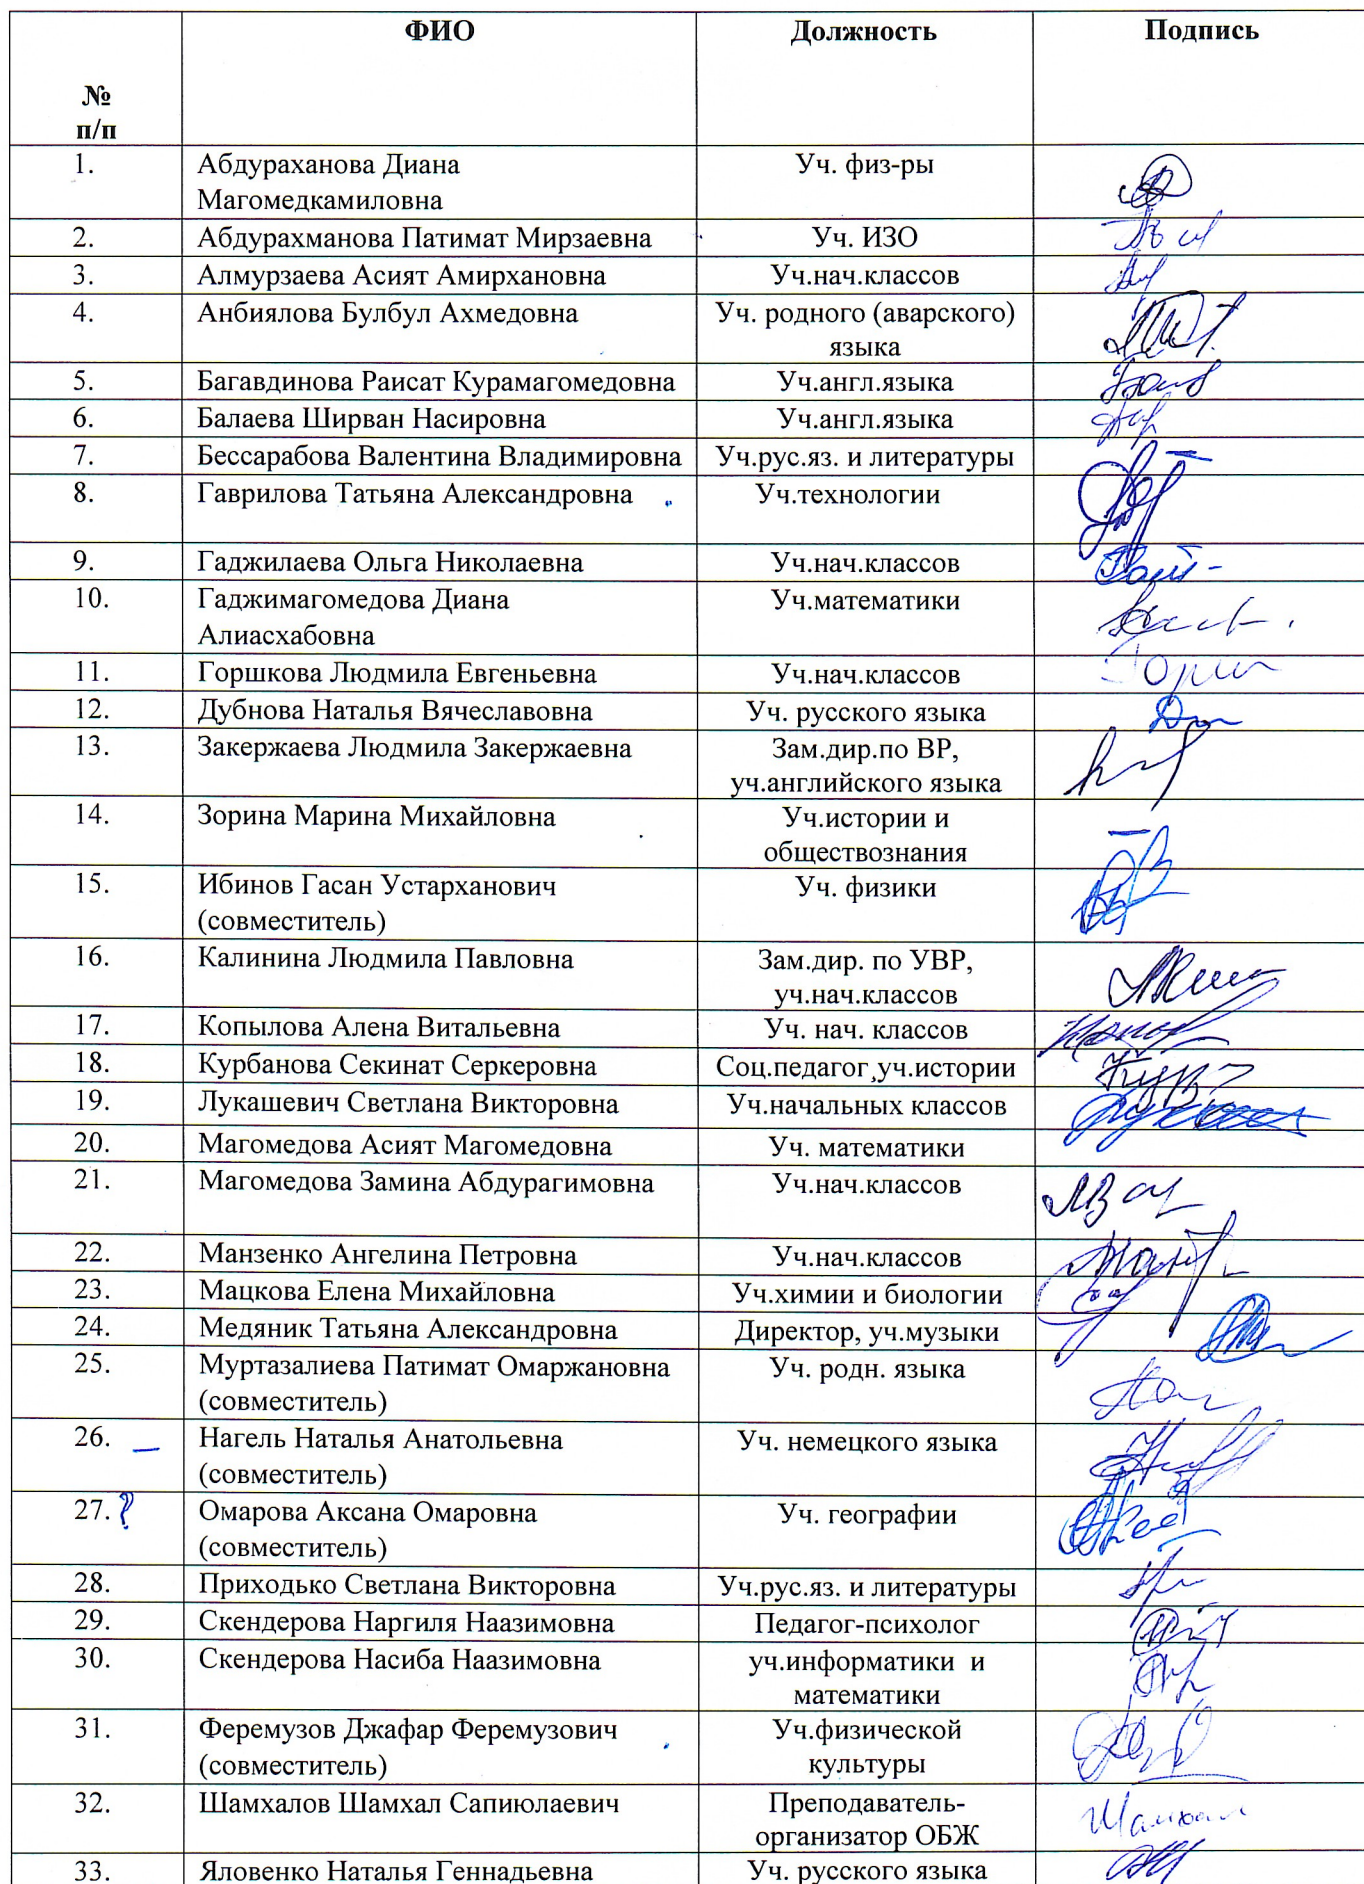 ФИО Должность Подпись
№
п/п
1. Абдураханова Диана Уч. физ-ры
Магомедкамиловна
2. Абдурахманова Патимат Мирзаевна Уч. ИЗО
3. Алмурзаева Асият Амирхановна Уч.нач.классов
4. Анбиялова Булбул Ахмедовна Уч. родного (аварского)
языка
5. Багавдинова Раисат Курамагомедовна Уч.англ.языка
6. Балаева Ширван Насировна Уч.англ.языка
7. Бессарабова Валентина Владимировна Уч.рус.яз. и литературы
8. Гаврилова Татьяна Александровна Уч.технологии
9. Гаджилаева Ольга Николаевна Уч.нач.классов
10. Гаджимагомедова Диана Уч.математики
Алиасхабовна
11. Горшкова Людмила Евгеньевна Уч.нач.классов
12. Дубнова Наталья Вячеславовна Уч. русского языка
13. Закержаева Людмила Закержаевна Зам.дир.по ВР,
уч.английского языка
14. Зорина Марина Михайловна Уч.истории и
обществознания
15. Ибинов Гасан Устарханович Уч. физики
(совместитель)
16. Калинина Людмила Павловна Зам.дир. по УВР,
уч.нач.классов
17. Копылова Алена Витальевна Уч. нач. классов
18. Курбанова Секинат Серкеровна Соц.педагог,уч.истории
19. Лукашевич Светлана Викторовна Уч.начальных классов
20. Магомедова Асият Магомедовна Уч. математики
21. Магомедова Замина Абдурагимовна Уч.нач.классов
22. Манзенко Ангелина Петровна Уч.нач.классов
23. Мацкова Елена Михайловна Уч.химии и биологии
24. Медяник Татьяна Александровна Директор, уч.музыки
25. Муртазалиева Патимат Омаржановна Уч. родн. языка
(совместитель)
26. – Нагель Наталья Анатольевна Уч. немецкого языка
(совместитель)
27. ? Омарова Аксана Омаровна Уч. географии
(совместитель)
28. Приходько Светлана Викторовна Уч.рус.яз. и литературы
29. Скендерова Наргиля Наазимовна Педагог-психолог
30. Скендерова Насиба Наазимовна уч.информатики и
математики
31. Феремузов Джафар Феремузович Уч.физической
(совместитель) культуры
32. Шамхалов Шамхал Сапиюлаевич Преподаватель-
организатор ОБЖ
33. Яловенко Наталья Геннадьевна Уч. русского языка